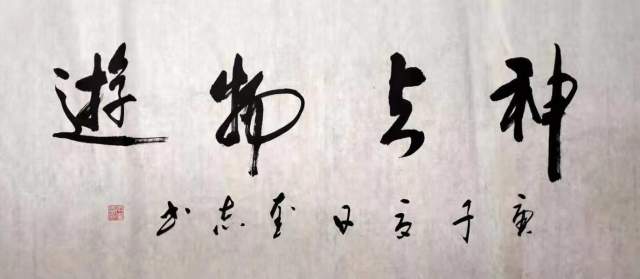 神与物遊
庚子夏日志书